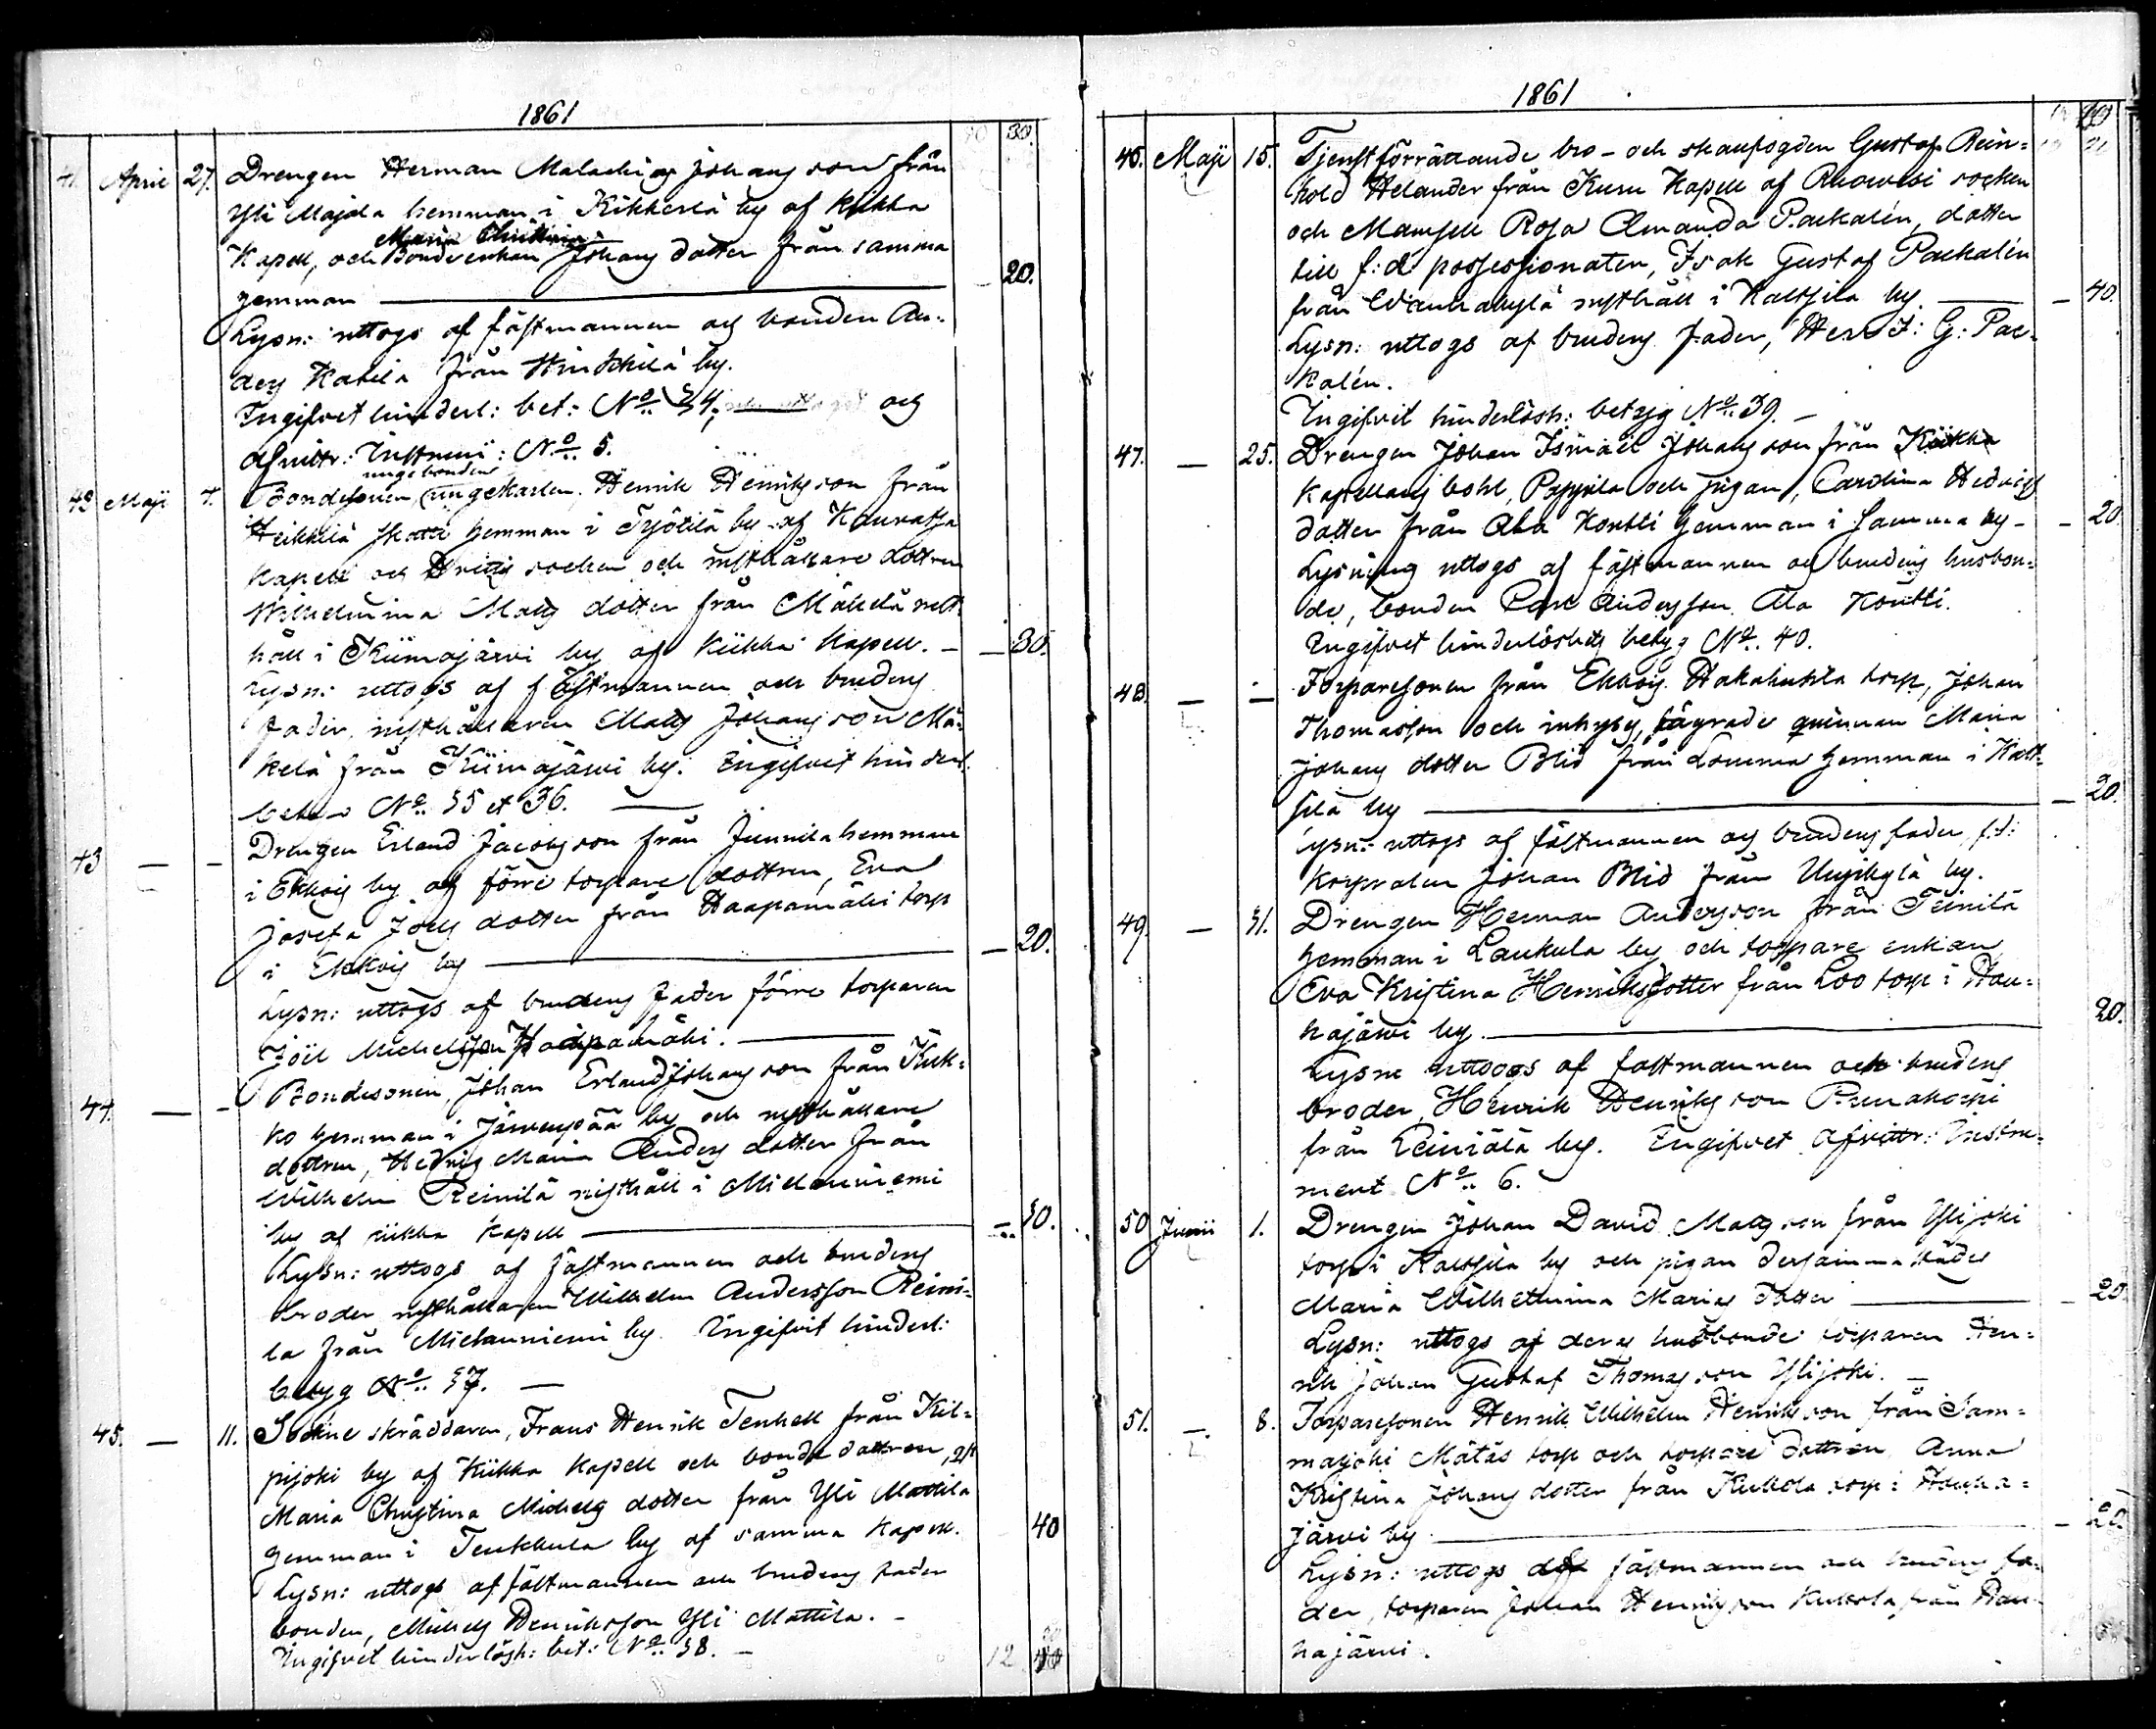 1861
30.
41. April 27. Drengen Herman Malachias Johansson från
Yli Majala hemman i Kikkerlä by af Kiikka
Maria Christina
Kapell, och Bondeenkan Johans dotter från samma
hemman — 20.
Lysn: uttogs af fästmannen och bonden An-
ders Katila från by.
Ingifvet hinderl: bet: No 34, och
Afvittr: Instrum: No 5.
ungebonden
42 Maji 4. Bondesonen, ungekarlen Henrik Henriksson från
Heikkilä skatte hemman i Työtilä by af Kauvatsa
Kapell och socken och rusthållare dottren
Wilhelmina Mats dotter från Mäkelä rust-
håll i Kiimajärvi by af Kiikka Kapell. — 30.
Lysn: uttogs af fästmannen och brudens
fader, rusthållaren Mats Johansson Mä-
kelä från Kiimajärvi by. Ingifvet hinderl.
No 35 et 36. —
43 — — Drengen Erland Jacobsson från Junnila hemman
i Ekkois by och förre torpare dottren, Eva
Josefa Joels dotter från Haapamäki torp
i Ekkois by — 20.
Lysn: uttogs af brudens fader förre torparen
Joël Michelsson Haapamäki. —
44. — — Bondesonen, Johan Erland Johansson från Kuk-
ko hemman i Järvenpää by och rusthållare
dottren, Hedvig Maria Anders dotter från
Wilhelm Reinilä rusthåll i Mielauniemi
by af Kiikka Kapell — 30.
Lysn: uttogs af fästmannen och brudens
broder rusthållaren Wilhelm Andersson Reini-
lä från Mielauniemi by. Ingifvit hinderl:
betyg No 37. —
45. — 11. Sockne skräddaren, Frans Henrik Tenhell från Kil-
pijoki by af Kiikka Kapell och bonde dottren,
Maria Christina Michels dotter från Yli Mattila
hemman i Tenkkula by af samma Kapell. 40
Lysn: uttogs af fästmannen och brudens fader
bonden, Michels Henriksson Yli Mattila. —
Ingifvet hinderlösh: bet: No 38. — 12
1861
46. Maji 15. Tjenstförrättande bro- och skansfogden Gustaf Rein-
hold Helander från Kuru Kapell af Ruovesi socken
och Mamsell Rosa Amanda Packalén, dotter
till f:d possessionaten, Isak Gustaf Packalén
från Wanhakylä rusthåll i Kaltsila by. — 40.
Lysn: uttogs af brudens fader, Herr I: G: Pac-
kalén.
Ingifvit hinderlösh: betyg No 39. —
47. — 25. Drengen Johan Ismael Johansson från Kiikka
Kapellans bohl, Pappila och pigan, Carolina Hedvigs
dotter från Ala Kontti hemman i samma by — 20
Lysning uttogs af fästmannen och brudens husbon-
de, bonden Andersson Ala Kontti.
Ingifvet hinderlöshets betyg No 40.
48 — — Torparesonen från Ekkois Hakahuhta torp, Johan
Thomasson och inhyses, lägrade qvinnan Maria
Johans dotter Blid från hemman i Kalt-
sila by — 20.
Lysn: uttogs af fästmannen och brudens fader, f:d:
Korpralen Johan Blid från by.
49. — 31. Drengen Herman Andersson från Teinilä
hemman i Laukula by och torpare enkan
Eva Kristina Henriksdotter från Loo torp i Hau-
hajärvi by. — 20.
Lysn: uttogs af fästmannen och brudens
broder, Henrik Henriksson
från by. Ingifvet Afvittr: Instru-
ment No 6.
50 Junii 1. Drengen Johan David Matsson från Ylijoki
torp i Kaltsila by och pigan dersamma städes
Maria Wilhelmina Marias dotter — 20
Lysn: uttogs af deras husbonde torparen Hen-
rik Johan Gustaf Thomasson Ylijoki. —
51. — 8. Torparesonen Henrik Wilhelm Henriksson från Sam-
maljoki Mätäs torp och torpare dottren Anna
Kristina Johans dotter från Kukola torp i Hauha-
järvi by — 20.
Lysn: uttogs af fästmannen och brudens fa-
der, torparen Johan Henriksson Kukola från Hau-
hajärvi.